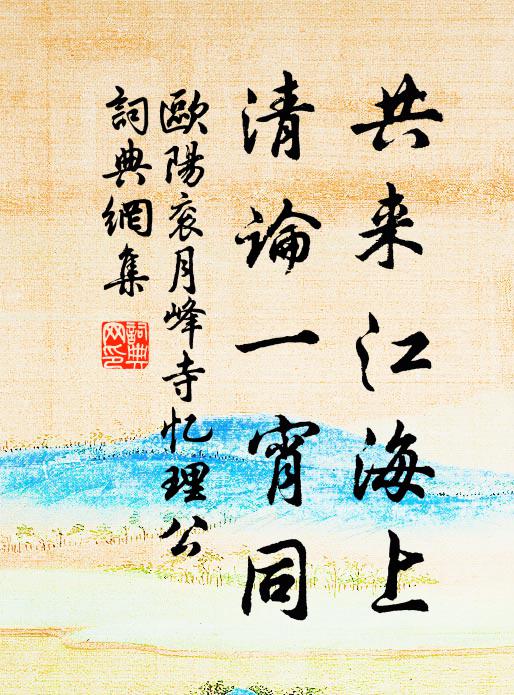 共来江海上
清論一宵同
歐陽衮月峰寺忆理公
詞典網集
詞典网印